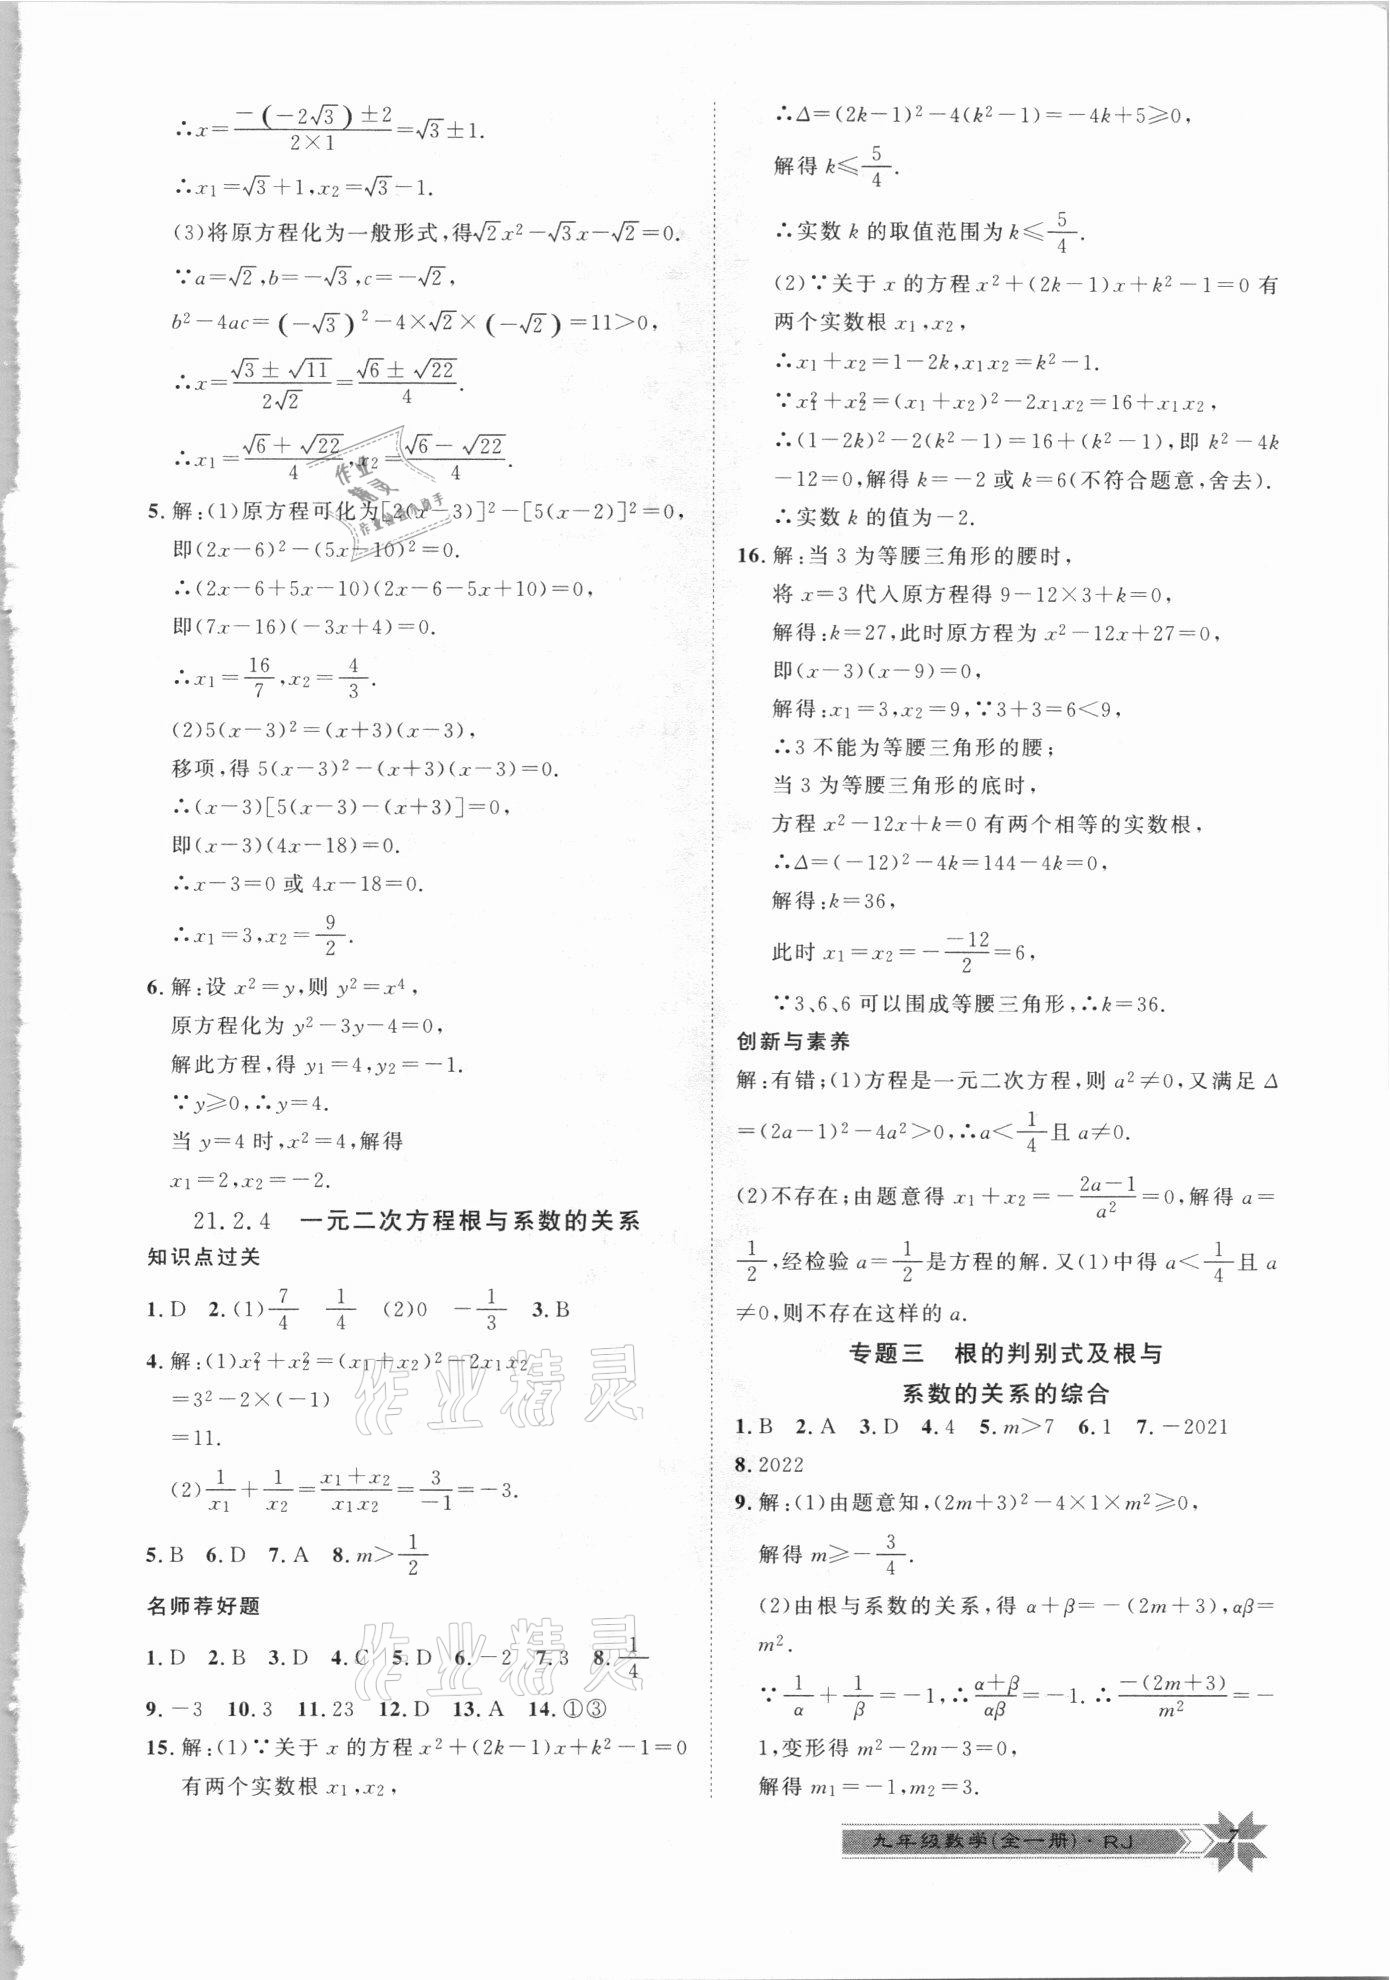 ∴x=\frac{-(-2√3)±2}{2×1}=√3±1.
∴x₁=√3+1,x₂=√3-1.
(3)将原方程化为一般形式,得√2x²-√3x-√2=0.
∵a=√2,b=-√3,c=-√2,
b²-4ac=(-√3)²-4×√2×(-√2)=11>0,
∴x=\frac{√3±√11}{2√2}=\frac{√6±√22}{4}.
∴x₁=\frac{√6+√22}{4},x₂=\frac{√6-√22}{4}.
5.解:(1)原方程可化为[2(x-3)]²-[5(x-2)]²=0,
即(2x-6)²-(5x-10)²=0.
∴(2x-6+5x-10)(2x-6-5x+10)=0,
即(7x-16)(-3x+4)=0.
∴x₁=\frac{16}{7},x₂=\frac{4}{3}.
(2)5(x-3)²=(x+3)(x-3),
移项,得5(x-3)²-(x+3)(x-3)=0.
∴(x-3)[5(x-3)-(x+3)]=0,
即(x-3)(4x-18)=0.
∴x-3=0或4x-18=0.
∴x₁=3,x₂=\frac{9}{2}.
6.解:设x²=y,则y²=x⁴,
原方程化为y²-3y-4=0,
解此方程,得y₁=4,y₂=-1.
∵y≥0,∴y=4.
当y=4时,x²=4,解得
x₁=2,x₂=-2.
21.2.4 一元二次方程根与系数的关系
知识点过关
1.D 2.(1)\frac{7}{4} \frac{1}{4} (2)0 -\frac{1}{3} 3.B
4.解:(1)x₁²+x₂²=(x₁+x₂)²-2x₁x₂
=3²-2×(-1)
=11.
(2)\frac{1}{x₁}+\frac{1}{x₂}=\frac{x₁+x₂}{x₁x₂}=\frac{3}{-1}=-3.
5.B 6.D 7.A 8.m>\frac{1}{2}
名师荐好题
1.D 2.B 3.D 4.C 5.D 6.-2 7.3 8.\frac{1}{4}
9.-3 10.3 11.23 12.D 13.A 14.①③
15.解:(1)∵关于x的方程x²+(2k-1)x+k²-1=0
有两个实数根x₁,x₂,
∴Δ=(2k-1)²-4(k²-1)=-4k+5≥0,
解得k≤\frac{5}{4}.
∴实数k的取值范围为k≤\frac{5}{4}.
(2)∵关于x的方程x²+(2k-1)x+k²-1=0有
两个实数根x₁,x₂,
∴x₁+x₂=1-2k,x₁x₂=k²-1.
∵x₁²+x₂²=(x₁+x₂)²-2x₁x₂=16+x₁x₂,
∴(1-2k)²-2(k²-1)=16+(k²-1),即k²-4k
-12=0,解得k=-2或k=6(不符合题意,舍去).
∴实数k的值为-2.
16.解:当3为等腰三角形的腰时,
将x=3代入原方程得9-12×3+k=0,
解得:k=27,此时原方程为x²-12x+27=0,
即(x-3)(x-9)=0,
解得:x₁=3,x₂=9,∵3+3=6<9,
∴3不能为等腰三角形的腰;
当3为等腰三角形的底时,
方程x²-12x+k=0有两个相等的实数根,
∴Δ=(-12)²-4k=144-4k=0,
解得:k=36,
此时x₁=x₂=-\frac{-12}{2}=6,
∵3、6、6可以围成等腰三角形,∴k=36.
创新与素养
解:有错;(1)方程是一元二次方程,则a²≠0,又满足Δ
=(2a-1)²-4a²>0,∴a<\frac{1}{4}且a≠0.
(2)不存在;由题意得x₁+x₂=-\frac{2a-1}{a²}=0,解得a=
\frac{1}{2},经检验a=\frac{1}{2}是方程的解.又(1)中得a<\frac{1}{4}且a
≠0,则不存在这样的a.
专题三 根的判别式及根与
系数的关系的综合
1.B 2.A 3.D 4.4 5.m>7 6.1 7.-2021
8.2022
9.解:(1)由题意知,(2m+3)²-4×1×m²≥0,
解得m≥-\frac{3}{4}.
(2)由根与系数的关系,得α+β=-(2m+3),αβ=
m².
∵\frac{1}{α}+\frac{1}{β}=-1,∴\frac{α+β}{αβ}=-1.∴\frac{-(2m+3)}{m²}=-
1,变形得m²-2m-3=0,
解得m₁=-1,m₂=3.
九年级数学(全一册)·RJ
7
作业精灵
作业精灵